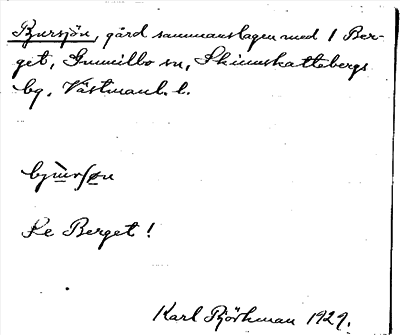 Bjursjön, gård sammanslagen med 1 Ber-
get, Gunnilbo sn, Skinnskattebergs
bg, Västmanl. l.
bjùrsøn
Se Berget!
Karl Björkman 1929.